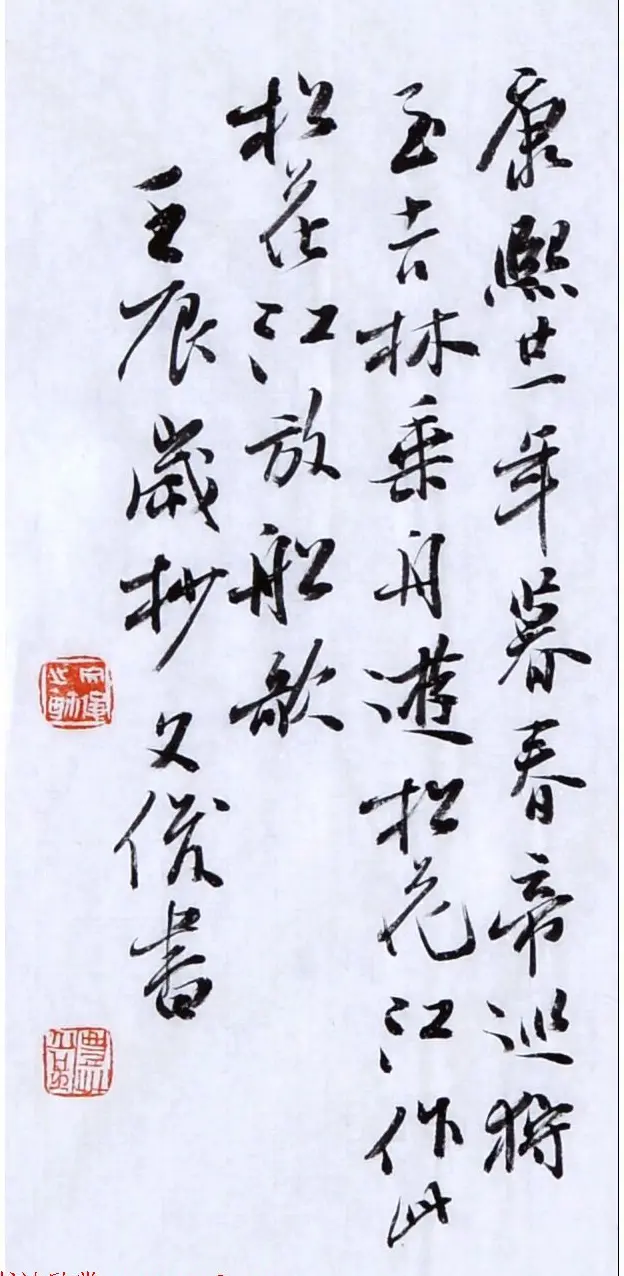 康熙廿一年暮春帝巡狩
至吉林乘舟遊松花江作此
松花江放船歌
壬辰歲抄文俊書